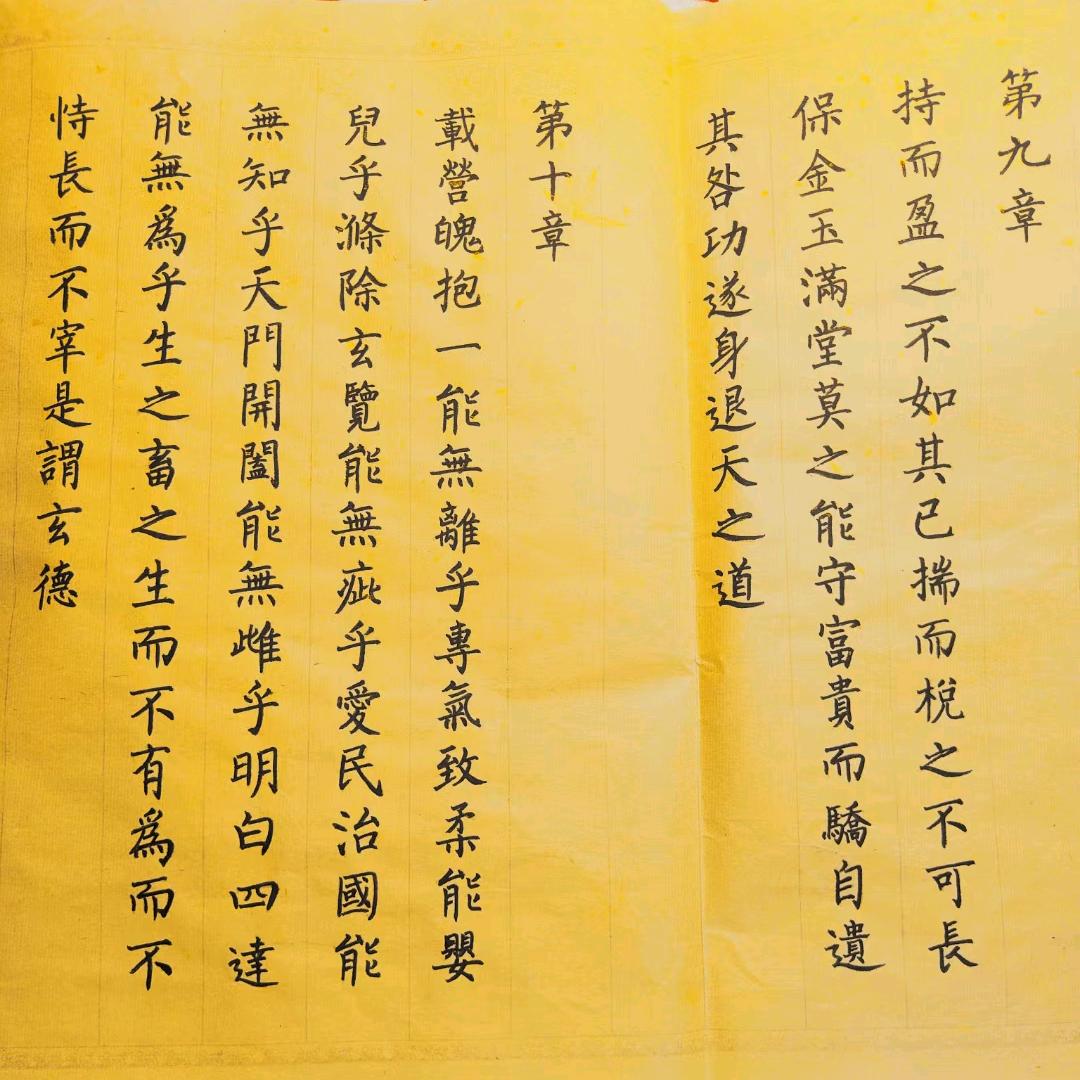 第九章
持而盈之不如其已揣而梲之不可長
保金玉滿堂莫之能守富貴而驕自遺
其咎功遂身退天之道
第十章
載營魄抱一能無離乎專氣致柔能嬰
兒乎滌除玄覽能無疵乎愛民治國能
無知乎天門開闔能無雌乎明白四達
能無為乎生之畜之生而不有為而不
恃長而不宰是謂玄德